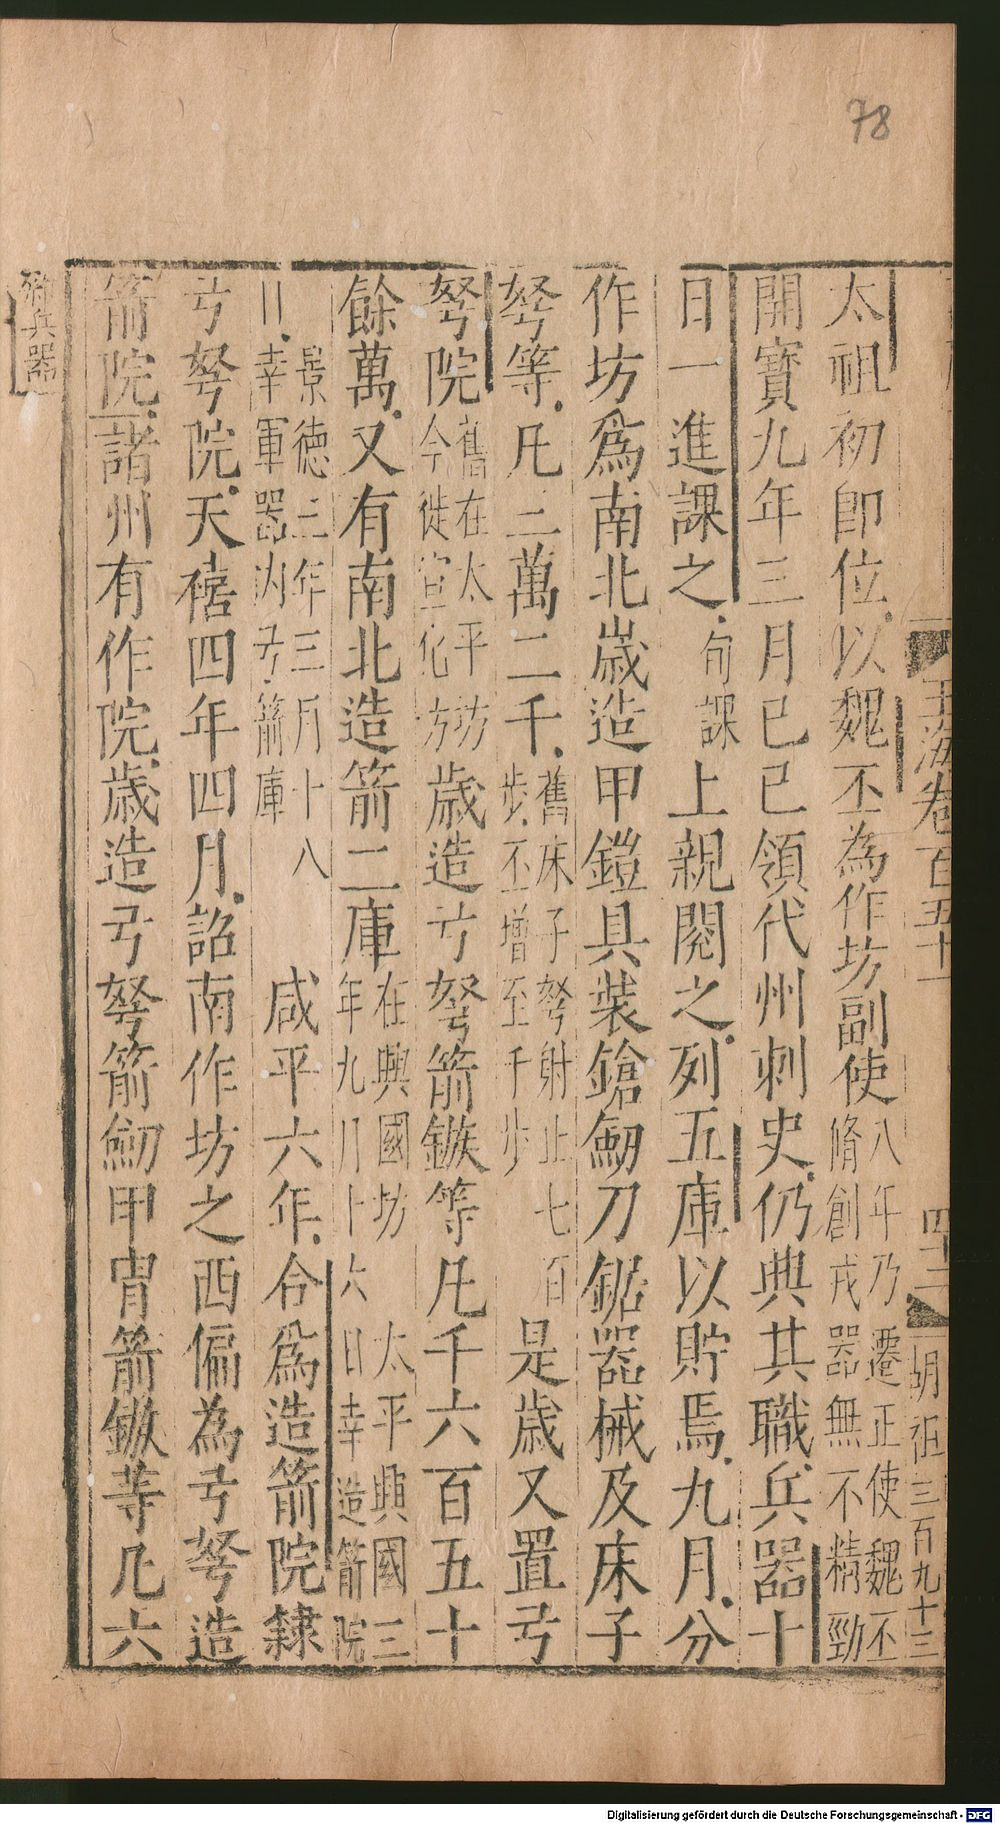 78
玉海卷百五十一
四十二
胡祖三百九十三
太祖初即位以魏丕為作坊副使八年乃遷正使魏丕脩創戎器無不精勁
開寶九年三月已已領代州刺史仍典其職兵器十
日一進課之旬課上親閱之列五庫以貯焉九月分
作坊爲南北歲造甲鎧具裝鎗劒刀鋸器械及床子
弩等凡三萬二千舊床子弩射止七百步丕增至千步是歲又置弓
弩院舊在太平坊今徙宣化坊歲造弓弩箭鏃等凡千六百五十
餘萬又有南北造箭二庫在興國坊太平興國三年九月十六日幸造箭院
景德三年三月十八日幸軍器内弓箭庫咸平六年合爲造箭院隸
弓弩院天禧四年四月詔南作坊之西偏為弓弩造
箭院諸州有作院歲造弓弩箭劒甲冑箭鏃等凡六
兵器
Digitalisierung gefördert durch die Deutsche Forschungsgemeinschaft - DFG